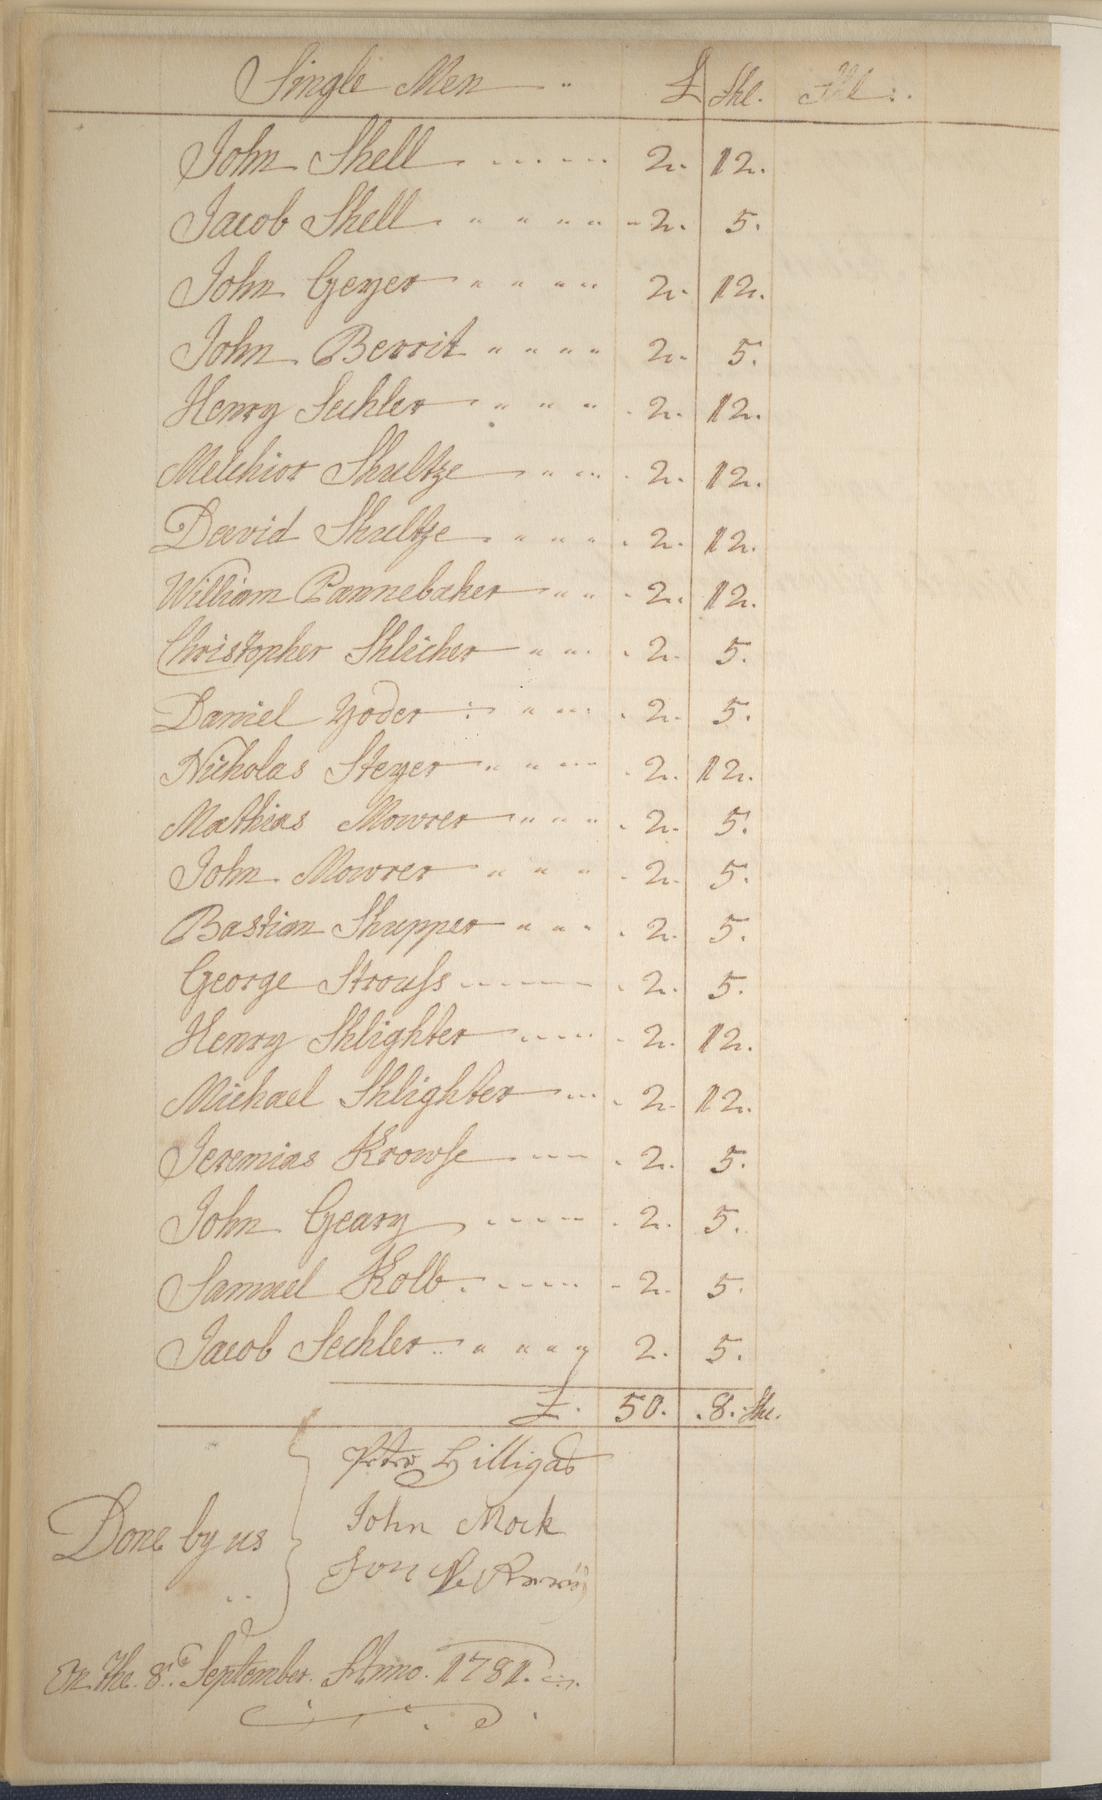 Single Men £ Shl.
John Shell 2. 12.
Jacob Shell 2. 5.
John Geyer 2. 12.
John Berrit 2. 5.
Henry Sechler 2. 12.
Melchior Shultze 2. 12.
David Shultze 2. 12.
William Pannebaker 2. 12.
Christopher Shlicher 2. 5.
Daniel Yoder 2. 5.
Nicholas Steyer 2. 12.
Mathias Mowrer 2. 5.
John Mowrer 2. 5.
Bastian Shupper 2. 5.
George Strouss 2. 5.
Henry Shlighter 2. 12.
Michael Shlighter 2. 12.
Jeremias Krowse 2. 5.
John Geary 2. 5.
Samuel Kolb 2. 5.
Jacob Sechler 2. 5.
£. 50. 8. Shl.
Peter Hilligas
Done by us John Mock
On the 8th September Anno. 1781.